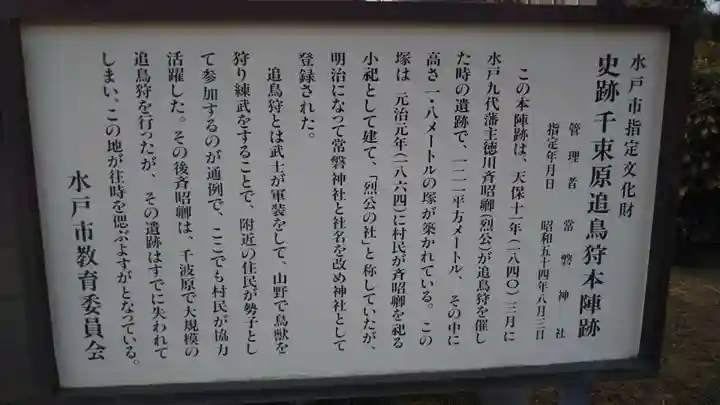 水戸市指定文化財
史跡千束原追鳥狩本陣跡
管理者 常磐神社
指定年月日 昭和五十四年八月三日
この本陣跡は、天保十一年(一八四〇)三月に
水戸九代藩主徳川斉昭卿(烈公)が追鳥狩を催し
た時の遺跡で、一二一平方メートル、その中に
高さ一・八メートルの塚が築かれている。この
塚は 元治元年(一八六四)に村民が斉昭卿を祀る
小祀として建て、「烈公の社」と称していたが、
明治になって常磐神社と社名を改め神社として
登録された。
追鳥狩とは武士が軍装をして、山野で鳥獣を
狩り練武をすることで、附近の住民が勢子とし
て参加するのが通例で、ここでも村民が協力
活躍した。その後斉昭卿は、千波原で大規模の
追鳥狩を行ったが、その遺跡はすでに失われて
しまい、この地が往時を偲ぶよすがとなっている。
水戸市教育委員会